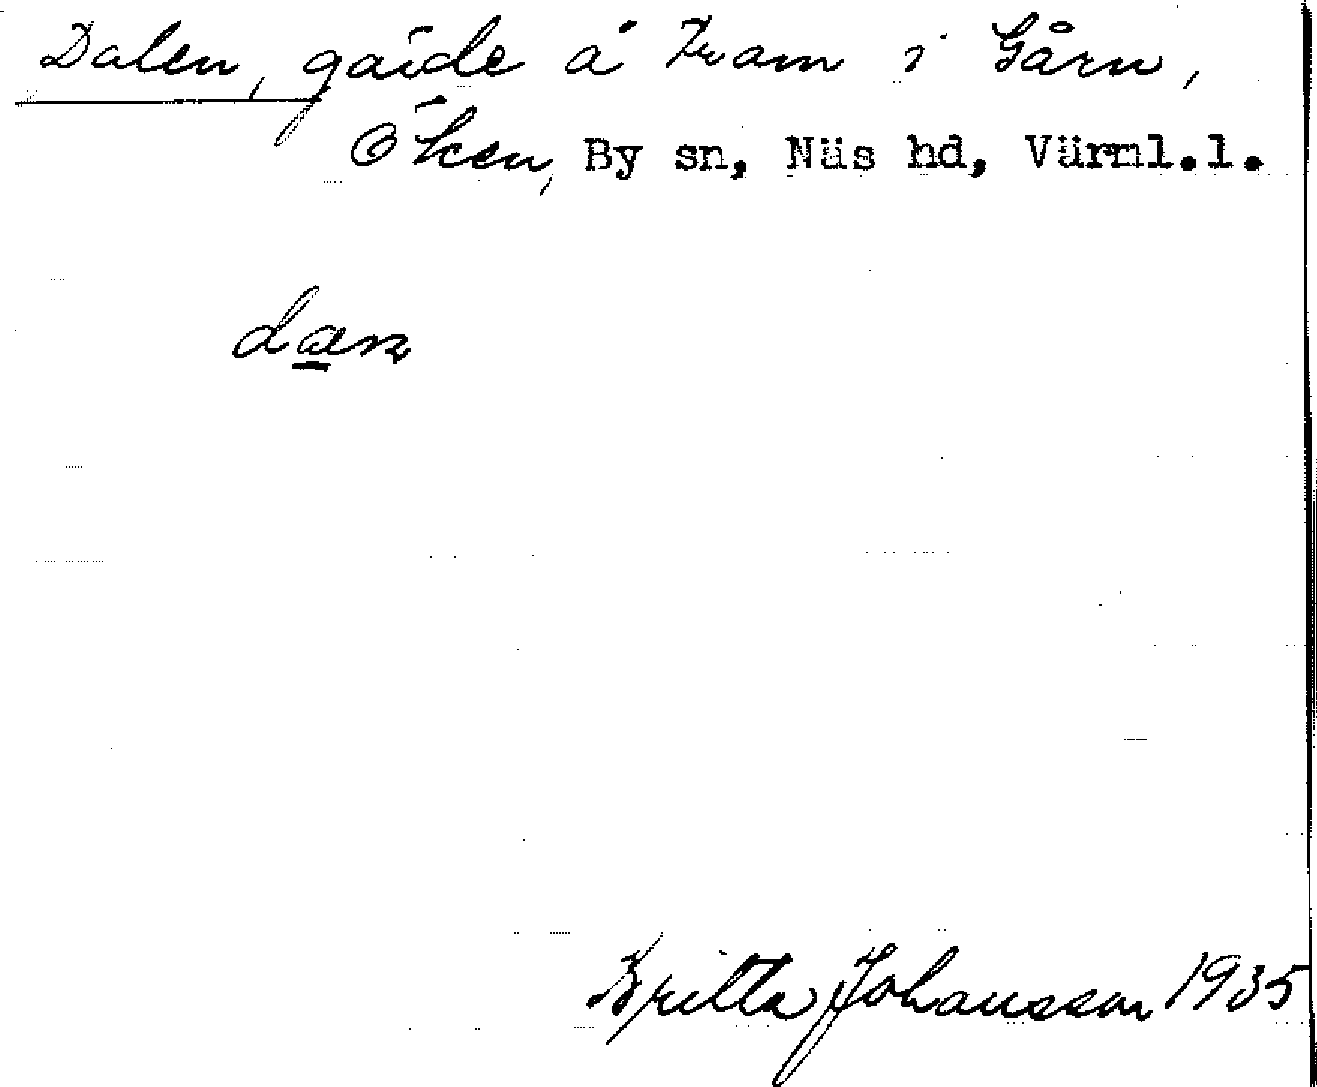 Dalen, gärde å Fram i Gårn,
Öken, By sn, Näs hd, Värml.l.
Britta Johansson 1935